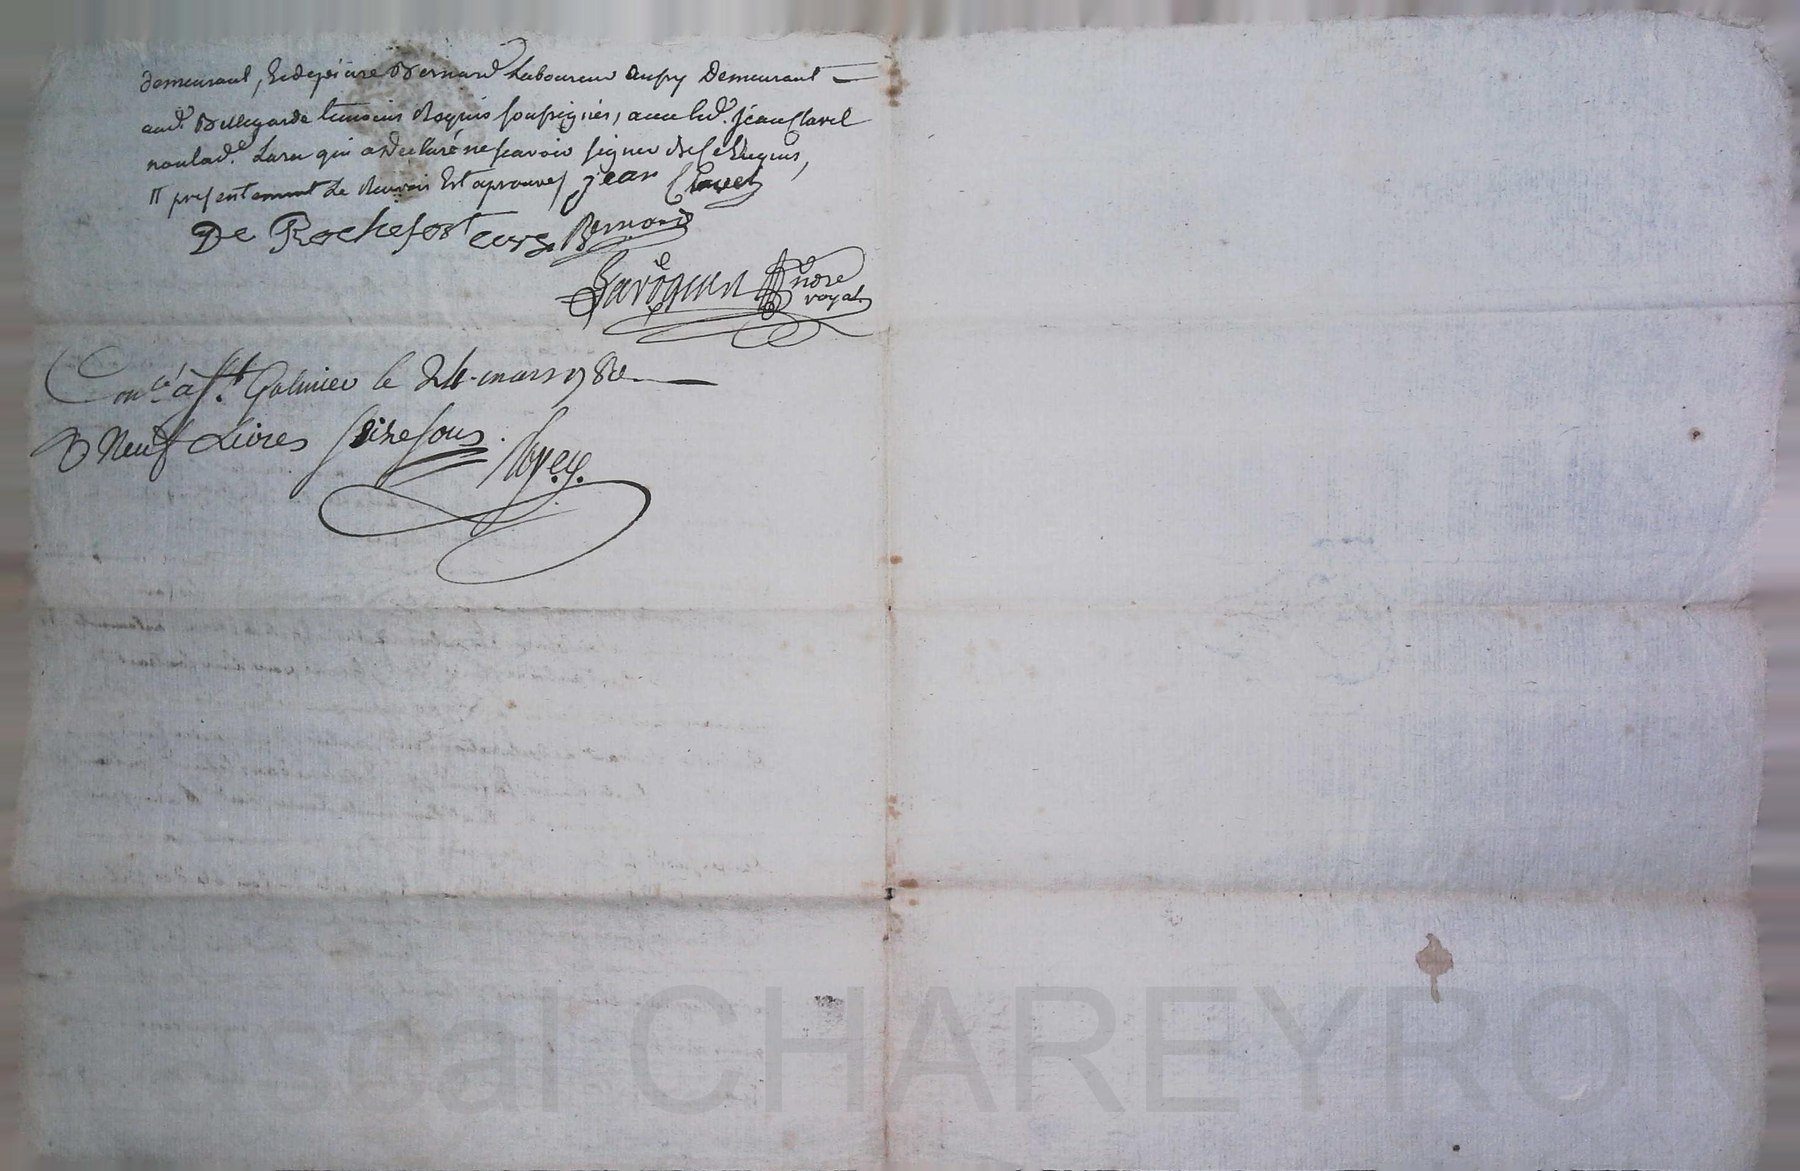 demeurant, & de pierre Bernard Laboureur aussy Demeurant
aud. Bellegarde temoins Requis soussignés, avec led. Jean Clavel
non lad.e qui a declaré ne scavoir signer de ce Enquis,
presentement de Est aprouvé jean Clavel
De Rochefort Bernard
Ndre royal
Con.lé à St. Galmier le 24 mars 178
Neuf Livres seize sous
pascal CHAREYRON